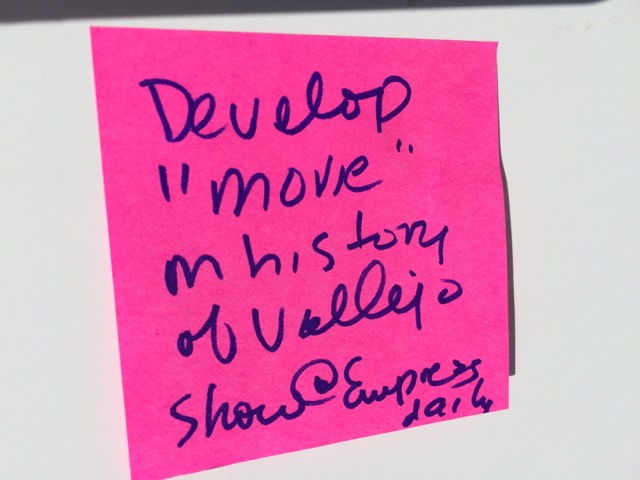 Develop
"movie"
on history
of Vallejo
show @ Empress
daily